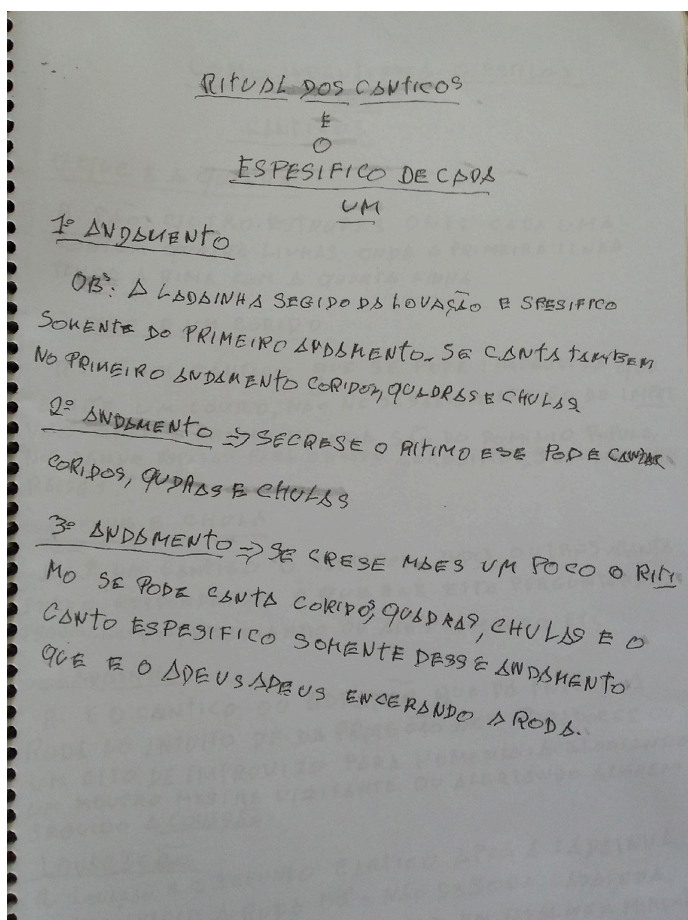 RITUAL DOS CANTICOS
E
O
ESPESIFICO DE CADA
UM
1º ANDAMENTO
OBS: A LADAINHA SEGIDO DA LOVAÇÃO E SPESIFICO
SOMENTE DO PRIMEIRO ANDAMENTO. SE CANTA TAMBEM
NO PRIMEIRO ANDAMENTO CORIDOS, QUADRAS E CHULAS
2º ANDAMENTO => SECRESE O RITIMO ESE PODE CANTAR
CORIDOS, QUDRAS E CHULAS
3º ANDAMENTO => SE CRESE MAES UM POCO O RITI
MO SE PODE CANTA CORIDOS, QUADRAS, CHULAS E O
CANTO ESPESIFICO SOMENTE DESSE ANDAMENTO
QUE E O ADEUS ADEUS ENCERANDO A RODA.